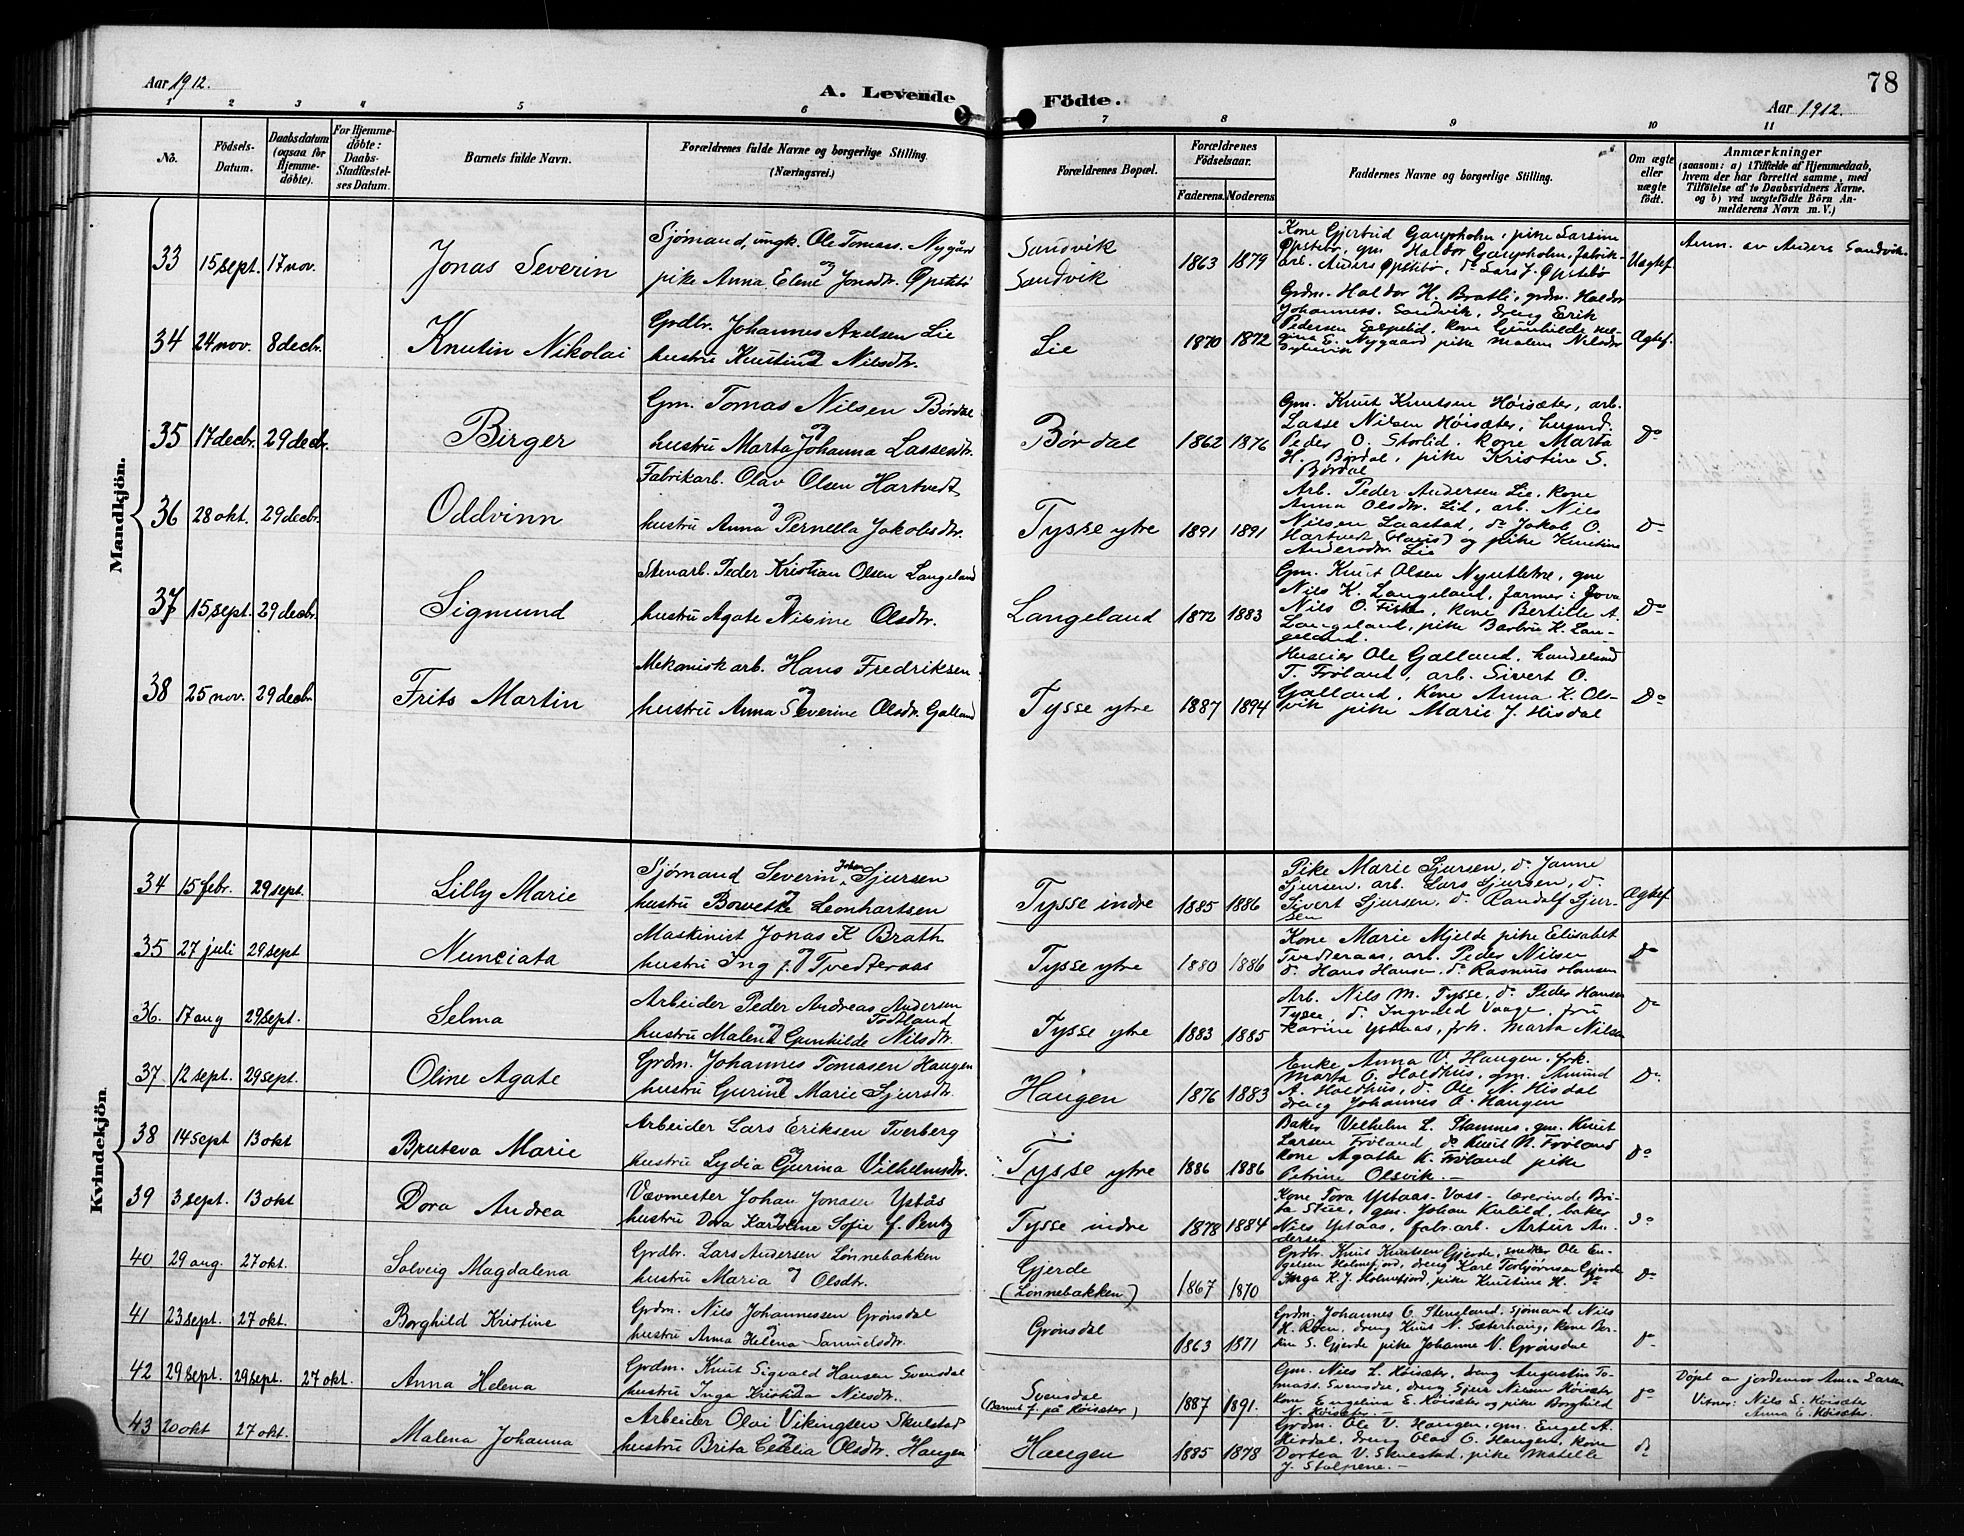 Aar 1912.
A. Levende Födte.
78
Aar 1912.
1 2 3 4 5 6 7 8 9 10 11
No.
Födsels-Datum.
Daabsdatum (ogsaa for Hjemmedöbte).
For Hjemmedöbte: Daabs-Stadfæstelses Datum.
Barnets fulde Navn.
Forældrenes fulde Navne og borgerlige Stilling. (Næringsvei.)
Forældrenes Bopæl.
Forældrenes Födselsaar.
Faderens.
Moderens
Faddernes Navne og borgerlige Stilling.
Om ægte eller uægte født.
Anmærkninger
(saasom: a) i Tilfælde af Hjemmedaab, hvem der har forrettet samme, med Tilföielse af to Daabsvidners Navne. og b) ved uægtefödte Börn Anmelderens Navn m. V.)
Mandkjön.
33 15 sept. 17 nov. Jonas Severin
Sjømand, ungk. Ole Tomass. Nygård
og
pike Anna Elene Jonsdr. Øpstebø
Sandvik
Sandvik
1863 1879
Kone Gjertrud Garpholm, pike Larsine
Øpstebø, gm. Haldor Garpholm, fabrik-
arb. Anders Øpstebø, do Lars J. Øpstebø
Uægtef.
Anm. av Anders Sandvik.
34 24 nov. 8 decbr. Knutin Nikolai
Grdbr. Johannes Axelsen Lie
og
hustru Knutine Nilsdtr.
Lie 1870 1872
Grdm. Haldor H. Bratli, grdm. Haldor
Johanness. Sandvik, dreng Erik
Pedersen kone Gunhilde
Nygaard pike Malene Nilsdtr
Ægtef.
35 17 decbr. 29 decbr. Birger
Gm. Tomas Nilsen Børdal
og
hustru Marta Johanna Lassesdtr.
Børdal 1862 1876
Gm. Knut Knutsen Høisæter, arb.
Lasse Nilsen Høisæter,
Peder O. Storlid, kone Marta
H. Børdal, pike Kristine S.
Børdal
do
36 28 okt. 29 decbr. Oddvinn
Fabrikarb. Olav Olsen Hartvedt
og
hustru Anna Pernella Jakobsdtr.
Tysse ytre 1891 1891
Arb. Peder Andersen Lie, kone
Anna Olsdtr. Lid, arb. Nils
Nilsen Laastad, do Jakob O.
Hartvedt (Haus) og pike Knutine
Andersdtr. Lie
Do
37 15 sept. 29 decbr. Sigmund
Stenarb. Peder Kristian Olsen Langeland
og
hustru Agate Nisine Olsdtr.
Langeland 1872 1883
Gm. Knut Olsen gm
Nils K. Langeland, farmer i Jova
Nils O. kone Bertille A.
Langeland, pike Barbru K. Lan-
geland.
Do
38 25 nov. 29 decbr. Frits Martin
Mekanisk arb. Hans Fredriksen
og
hustru Anna Severine Olsdtr. Galland
Tysse ytre 1887 1894
Huseier Ole Galland, handelsmd
T. Frøland, arb. Sivert O.
Galland, Kone Anna K. Ols-
vik pike Marie J. Hisdal
Do
Kvindekjön
34 15 febr. 29 sept. Lilly Marie
Sjømand Severin Johan Sjursen
og
hustru Bowette Leonhartsen
Tysse indre 1885 1886
Pike Marie Sjursen, do Janne
Sjursen, arb. Lars Sjursen, do
Sivert Sjursen, do Randolf Sjur-
sen
Ægtef
35 27 juli 29 sept Nunciata
Maskinist Jonas K Brath
og
hustru Ing f. Tvedteraas
Tysse ytre 1880 1886
Kone Marie Mjelde pike Elisabet
Tvedteraas, arb. Peder Nilsen
do Hans Hansen, do Rasmus Hansen
do
36. 17 aug 29 sept. Selma
Arbeider Peder Andreas Andersen
Tødtland
og
hustru Malene Gunhilde Nilsdtr.
Tysse ytre 1883 1885
Arb. Nils M. Tysse, do Peder Hansen
Tysse, do Ingvald Vaage, fru
Karine Ystaas, frk. Marta Nilsen
do
37 12 sept. 29 sept. Oline Agate
Grdm. Johannes Tomasen Haugen
og
hustru Gurine Marie Sjursdtr.
Haugen 1876 1883
Enke Anna V. Haugen, frk.
Marta O. Holdhus, gm. Amund
A. Holdhus, do Ole N. Hisdal
dreng Johannes O. Haugen
Do
38 14 sept 13 okt Bruteva Marie
Arbeider Lars Eriksen Tverberg
og
hustru Lydia Gurina Vilhelmsdtr.
Tysse ytre 1886 1886
Baker Vilhelm L. Stamnes, gm. Knut
Larsen Frøland, do Knut N. Frøland
kone Agathe K. Frøland pike
Petrine Olsvik.
Do
39 3 sept. 13 okt Dora Andrea
Vævmester Johan Jonsen Ystås
og
hustru Dora Karoline Sofie f. Bentz
Tysse indre 1878 1884
Kone Tora Ystaas - Voss - lærerinde Bri-
ta Stue, gm. Johan Kulild, baker
Nils Ystaas, fabr. arb. Artur An-
dersen
do
40 29 aug. 27 okt. Solveig Magdalena
Grdbr. Lars Andersen Lønnebakken
og
hustru Maria Olsdtr.
Gjerde
(Lønnebakken)
1867 1870
Grdbr. Knut Knutsen Gjerde, snedker Ole En-
gelsen Holmefjord, dreng Karl Torbjørnsen Gjerde
Inga K. J. Holmefjord, pike Knutine H. do
Do
41 23 sept. 27 okt. Borghild Kristine
Grdm. Nils Johannessen Grønsdal
og
hustru Anna Helena Samuelsdtr.
Grønsdal 1863 1871
Grdm. Johannes O. Stenglund. sjømand Nils
H. Røen. dreng Knut N. Sæterhaug, kone Ber-
tine S. Gjerde pike Johanne N. Grønsdal
do
42 29 sept. 29 sept. 27 okt. Anna Helena
Grdm. Knut Sigvald Hansen Svensdal
og
hustru Inga Kristina Nilsdtr.
Svensdal
(Barnet f. på Høisæter)
1887 1891.
Gm. Nils L. Høisæter, dreng Augustin To-
mass. Svensdal, dreng Sjur Nilsen Høisæter
Kone Engelina E. Høisæter og pike Borghild
N. Høisæter.
do
Døpt av jordemor Anna Larsen
Vitner: Nils L. Høisæter
Anna E. Høisæter.
43 20 okt 27 okt. Malena Johanna
Arbeider Olai Vikingsen Skulstad
og
hustru Brita Cecelia Olsdtr. Haugen
Haugen 1885 1878
Grdm. Ole V. Haugen, gm. Engel A.
Hisdal, dreng Olav O. Haugen, kone
Dortea V. Skulstad, pike Matelle
J. Stølpene.
do